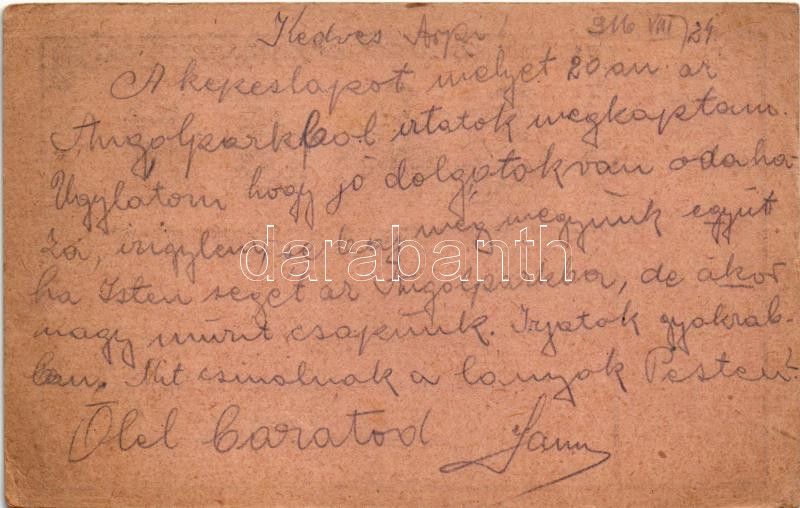 Kedves Arpi! 916 VIII/24.
A kepeslapot melyet 20 an az
Angolparkbol irtatok megkaptam.
Ugylátom hogy jó dolgotok van odaha
za, irigylem, de még megyünk együt
ha Isten seget az Angolparkba, de akor
nagy murit csapunk. Irjatok gyakrab-
ban. Mit csinolnak a lanyok Pesten?
Ölel baratod
darabanth